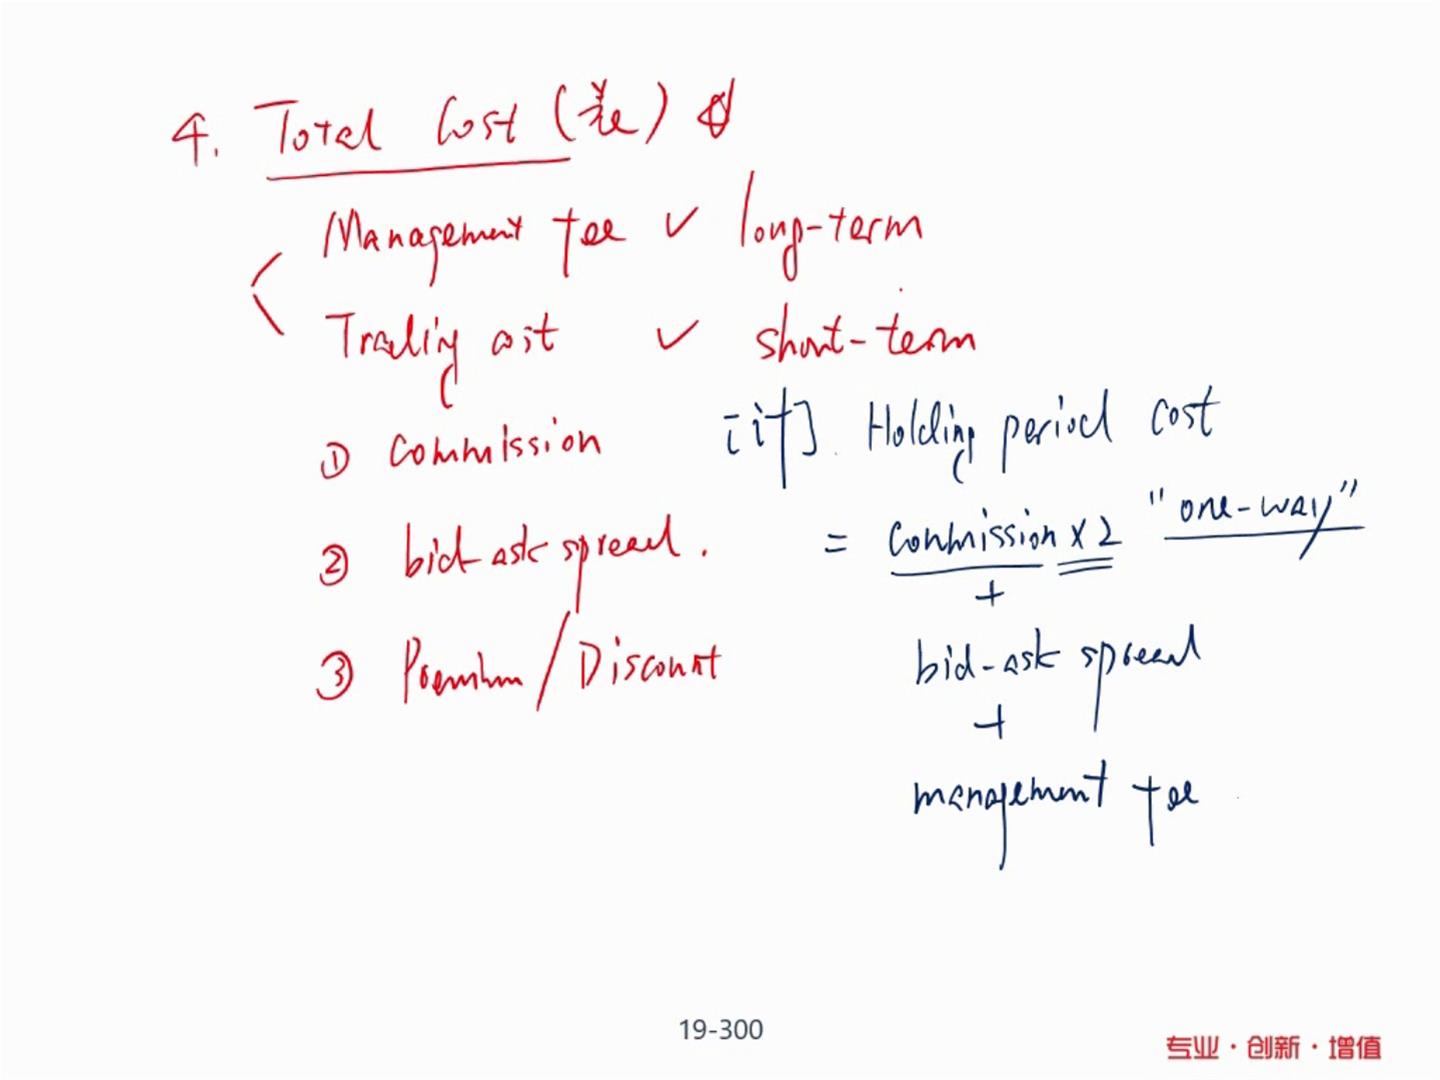 4. Total Cost
Management fee ✓ long-term
Trading cost ✓ short-term
① Commission
② bid-ask spread.
③ Premium/Discount
[计]. Holding period cost
= Commission x 2 "one-way"
+
bid-ask spread
+
management fee
19-300
专业·创新·增值